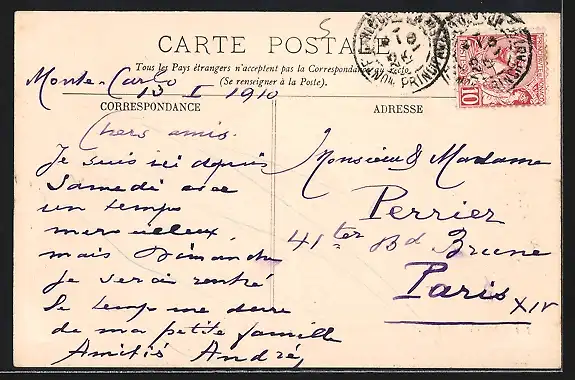 CARTE POSTALE
Tous les Pays étrangers n'acceptent pas la Correspondance au
(Se renseigner à la Poste).
Monte-Carlo
13 I 1910
CORRESPONDANCE
Chers amis.
Je suis ici depuis
Samedi avec
un temps
merveilleux
mais Dimanche
je serai rentré
le temps me dure
de ma petite famille
Amitiés André,
ADRESSE
Monsieur & Madame
Perrier
41 ter Bd Brune
Paris XIV
10